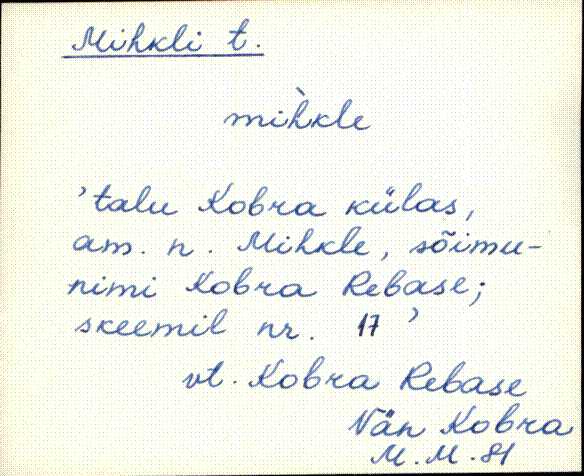 Mihkli t.
mìhkle
'talu Kobra külas,
am. n. Mihkle, sõimu-
nimi Kobra Rebase;
skeemil nr. 17 '
vt. Kobra Rebase
Vän Kobra
M. M. 81